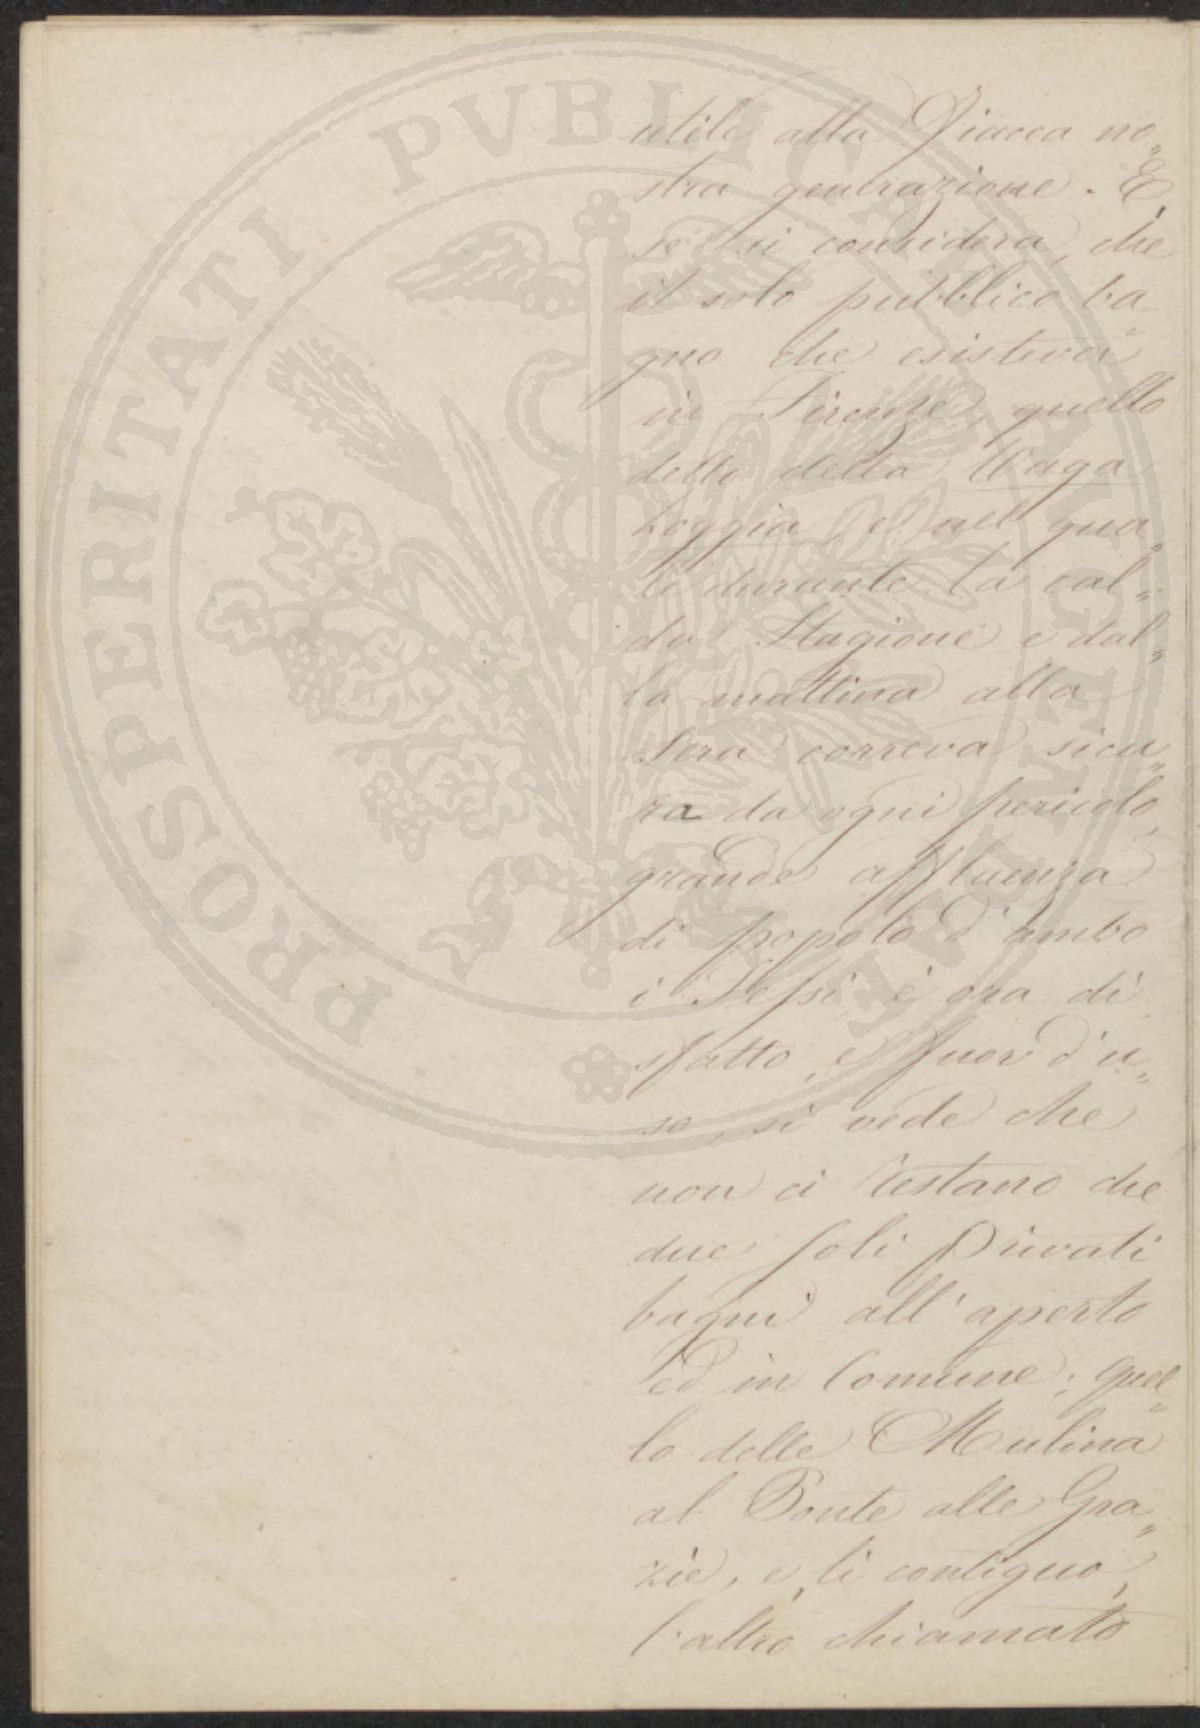 utile alla fiacca no„
stra generazione. E,
se si considera, che
il solo pubblico ba„
gno che esisteva
in Firenze, quello
detto della Vaga
Loggia, e nel qua„
le durante la cal„
da Stagione e dal„
la mattina alla
Sera correva sicu„
ra da ogni pericolo,
grande affluenza
di popolo d'ambo
i Sessi è ora di
sfatto, e fuor d'u„
so, si vede che
non ci restano che
due soli Privati
bagni all'aperto
ed in Comune; quel„
lo delle Mulina
al Ponte alle Gra„
zie, e, lì contiguo,
l'altro chiamato
PROSPERITATI PVBLICAE AVGENDAE